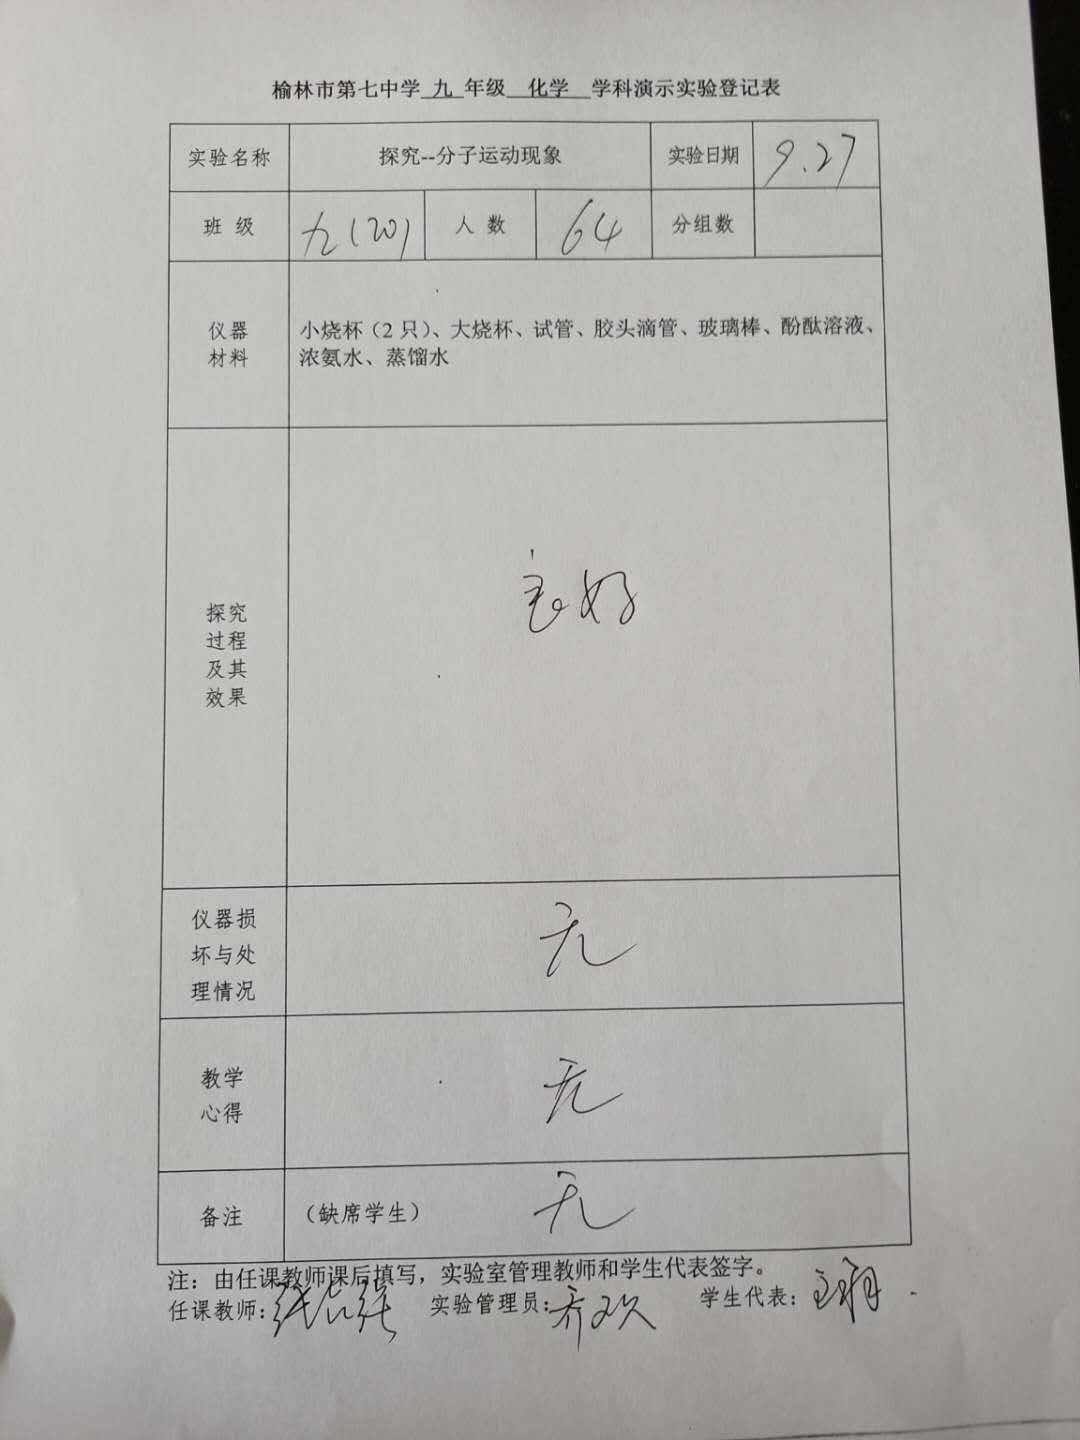 榆林市第七中学 九 年级 化学 学科演示实验登记表
实验名称 探究--分子运动现象 实验日期 9.27
班 级 九(20) 人 数 64 分组数
仪器
材料
小烧杯（2 只）、大烧杯、试管、胶头滴管、玻璃棒、酚酞溶液、
浓氨水、蒸馏水
探究
过程
及其
效果
良好
仪器损
坏与处
理情况
无
教学
心得
无
备注 （缺席学生） 无
注：由任课教师课后填写，实验室管理教师和学生代表签字。
任课教师： 实验管理员：乔欢 学生代表：